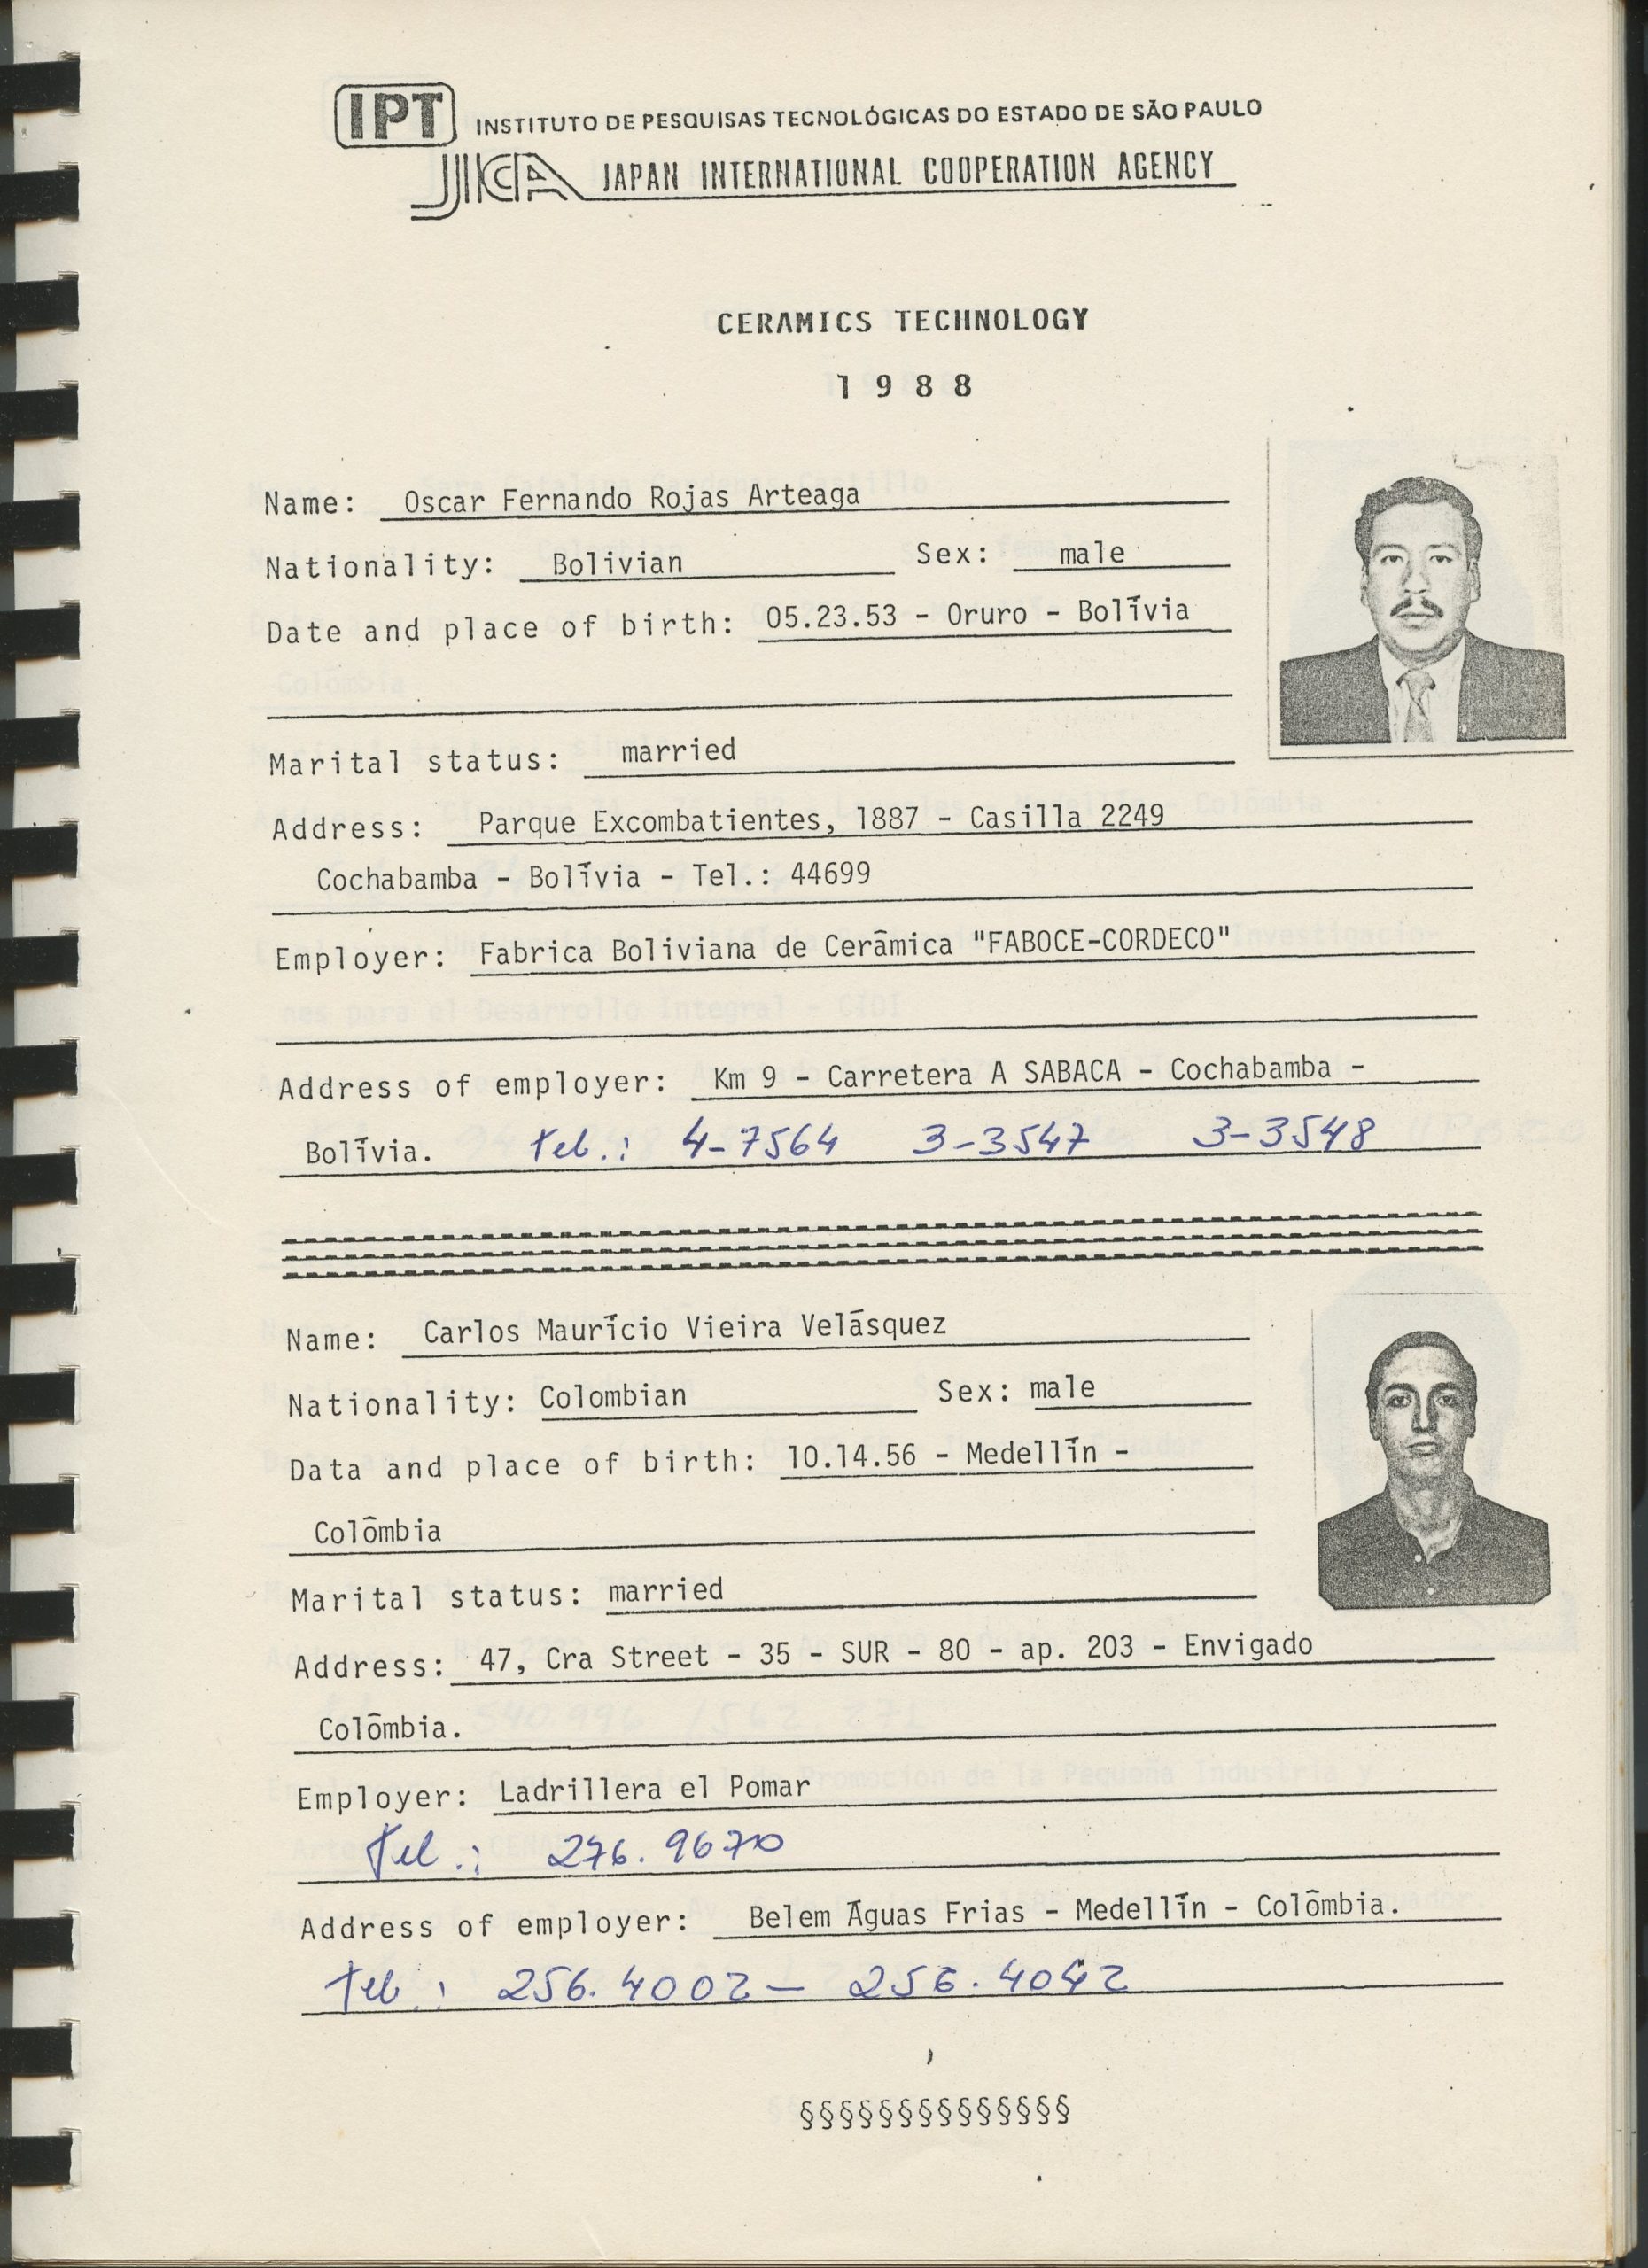 IPT INSTITUTO DE PESQUISAS TECNOLÓGICAS DO ESTADO DE SÃO PAULO
JICA JAPAN INTERNATIONAL COOPERATION AGENCY
CERAMICS TECHNOLOGY
1988
Name: Oscar Fernando Rojas Arteaga
Nationality: Bolivian Sex: male
Date and place of birth: 05.23.53 - Oruro - Bolívia
Marital status: married
Address: Parque Excombatientes, 1887 - Casilla 2249
Cochabamba - Bolívia - Tel.: 44699
Employer: Fabrica Boliviana de Cerâmica "FABOCE-CORDECO"
Address of employer: Km 9 - Carretera A SABACA - Cochabamba -
Bolívia. Tel.: 4-7564 3-3547 3-3548
Name: Carlos Maurício Vieira Velásquez
Nationality: Colombian Sex: male
Data and place of birth: 10.14.56 - Medellín -
Colômbia
Marital status: married
Address: 47, Cra Street - 35 - SUR - 80 - ap. 203 - Envigado
Colômbia.
Employer: Ladrillera el Pomar
Tel.: 276.9670
Address of employer: Belem Águas Frias - Medellín - Colômbia.
Tel.: 256.4002 - 256.4042
§§§§§§§§§§§§§§